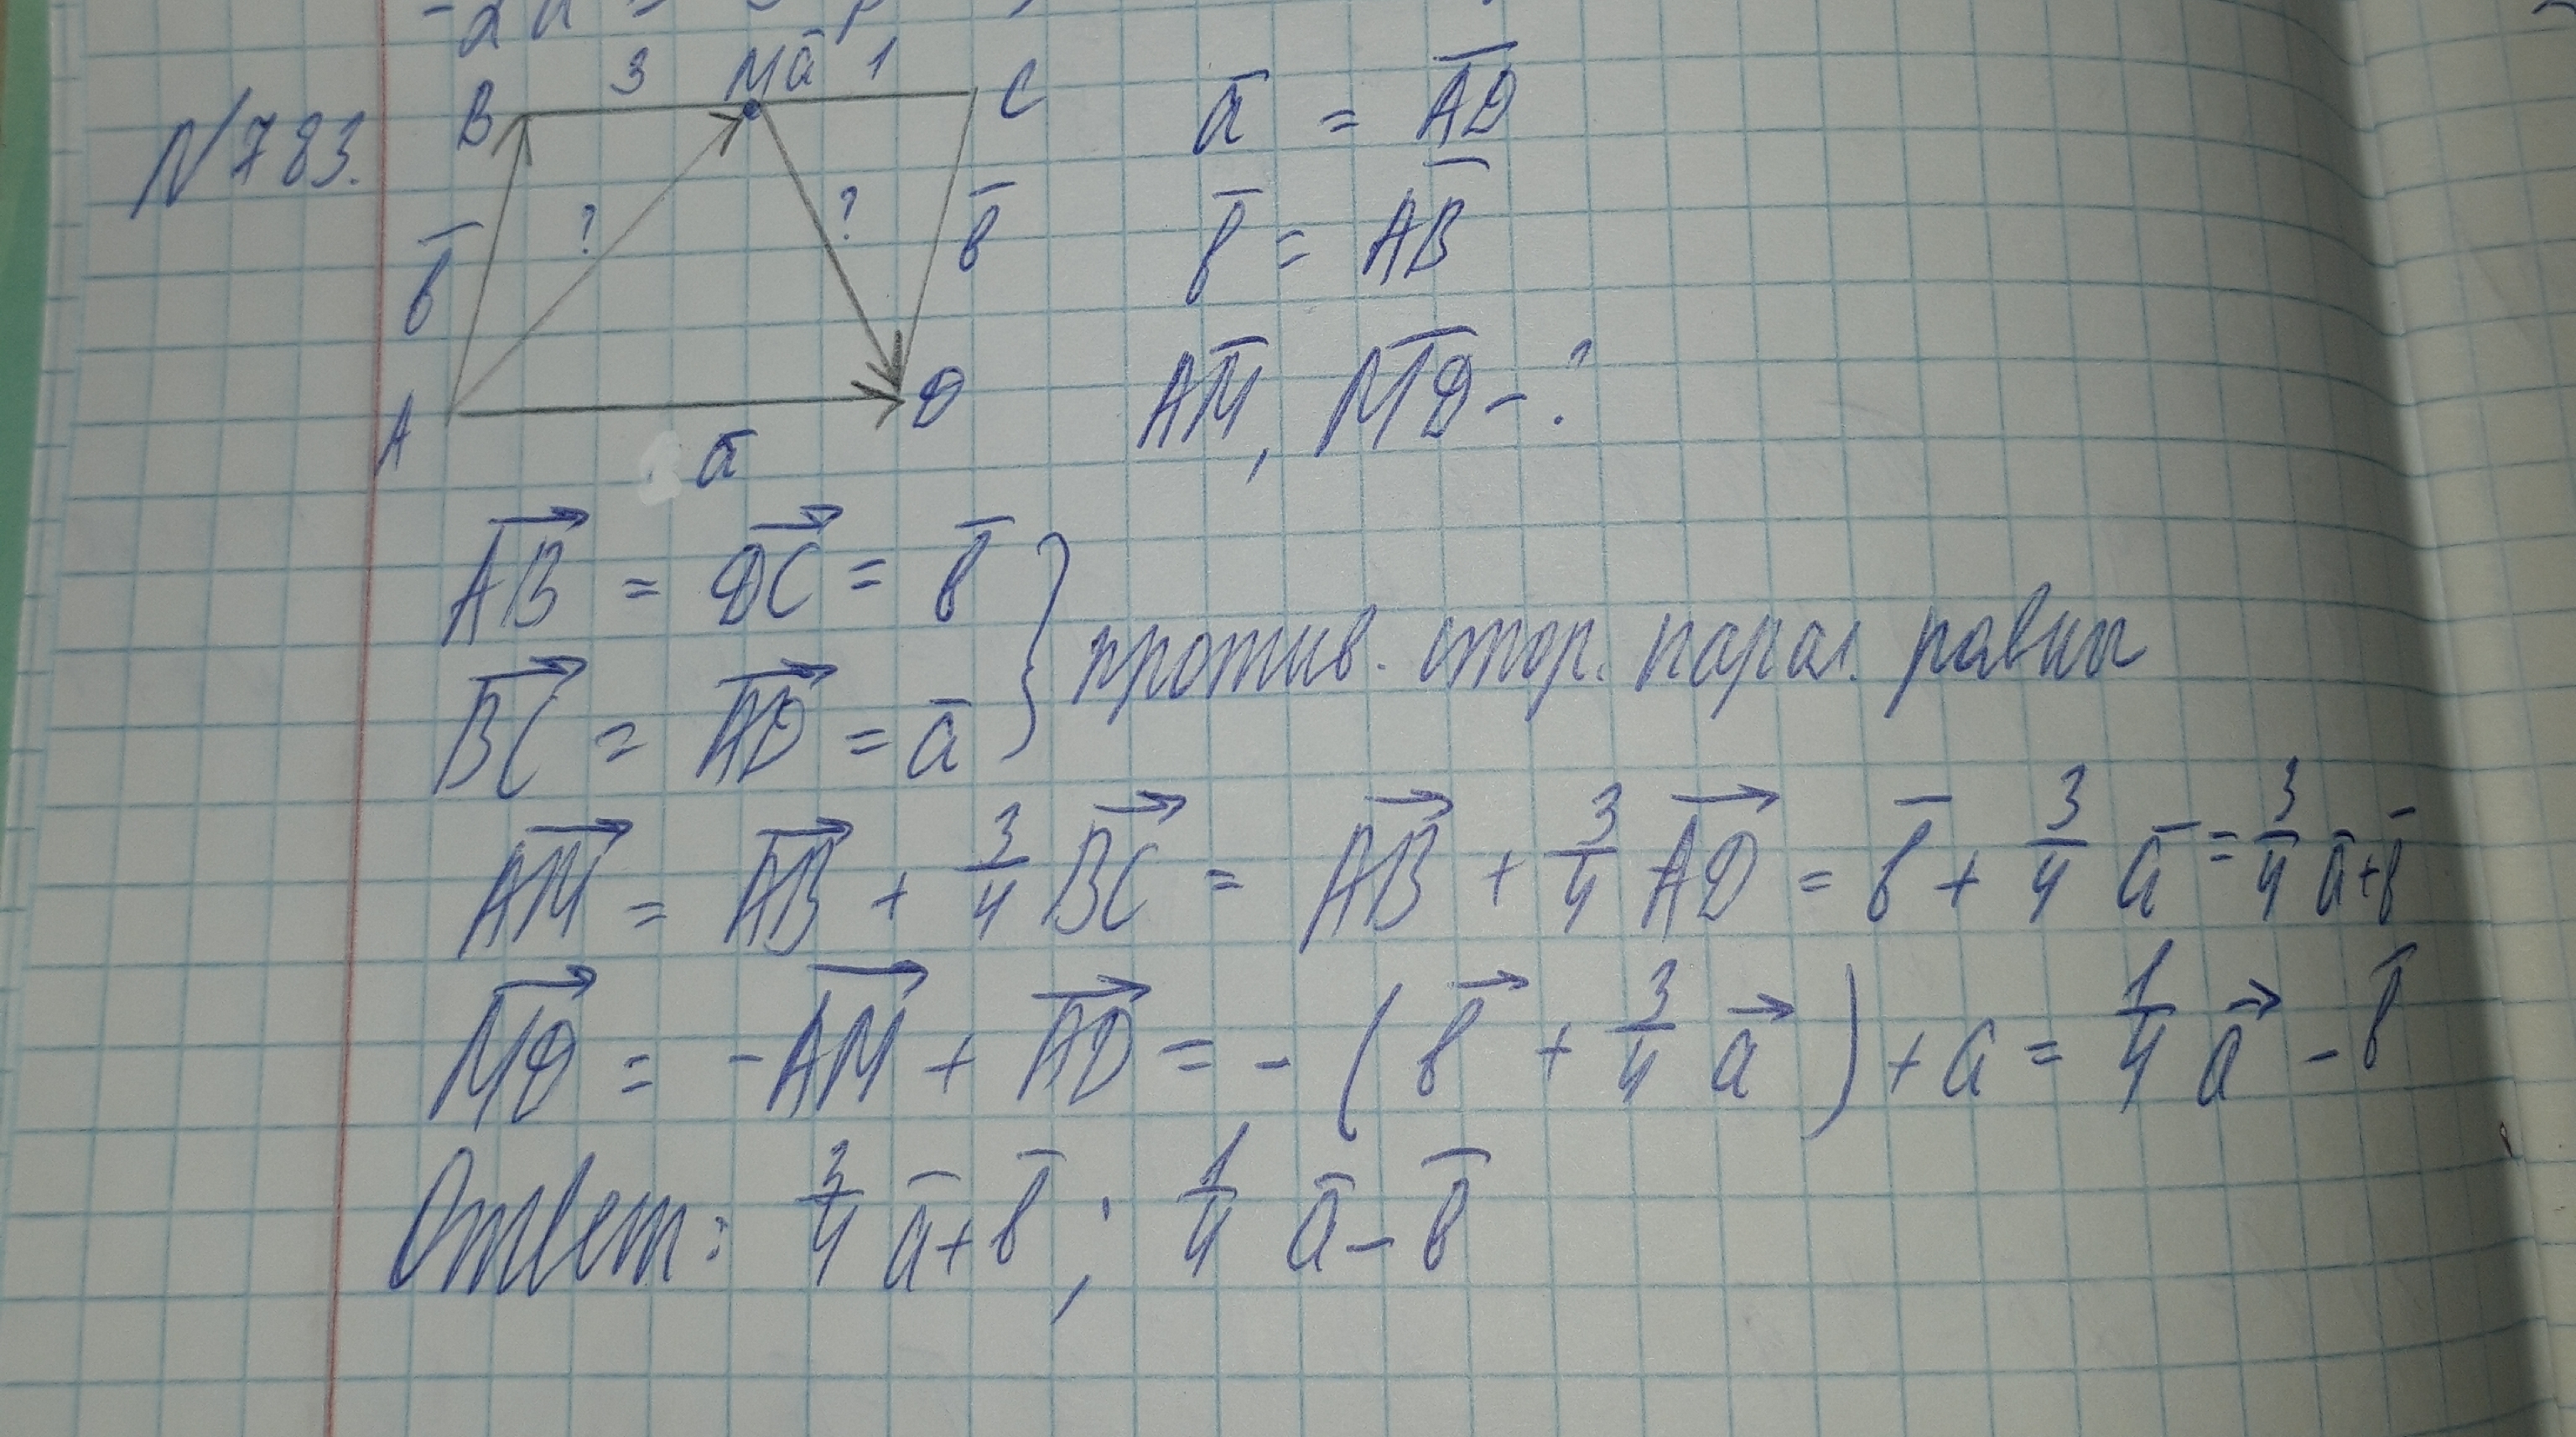 N783.
B 3 M a̅ 1 C
b̅ ? ? b̅
A a̅ D
a̅ = A̅D̅
b̅ = A̅B̅
A̅M̅, M̅D̅ - ?
A⃗B⃗ = D⃗C⃗ = b̅
B⃗C⃗ = A⃗D⃗ = a̅
} против. стор. парал. равны
A⃗M⃗ = A⃗B⃗ + 3/4 B⃗C⃗ = A⃗B⃗ + 3/4 A⃗D⃗ = b̅ + 3/4 a̅ = 3/4 a̅ + b̅
M⃗D⃗ = -A⃗M⃗ + A⃗D⃗ = - (b⃗ + 3/4 a⃗) + a = 1/4 a⃗ - b̅
Ответ: 3/4 a̅ + b̅ ; 1/4 a̅ - b̅